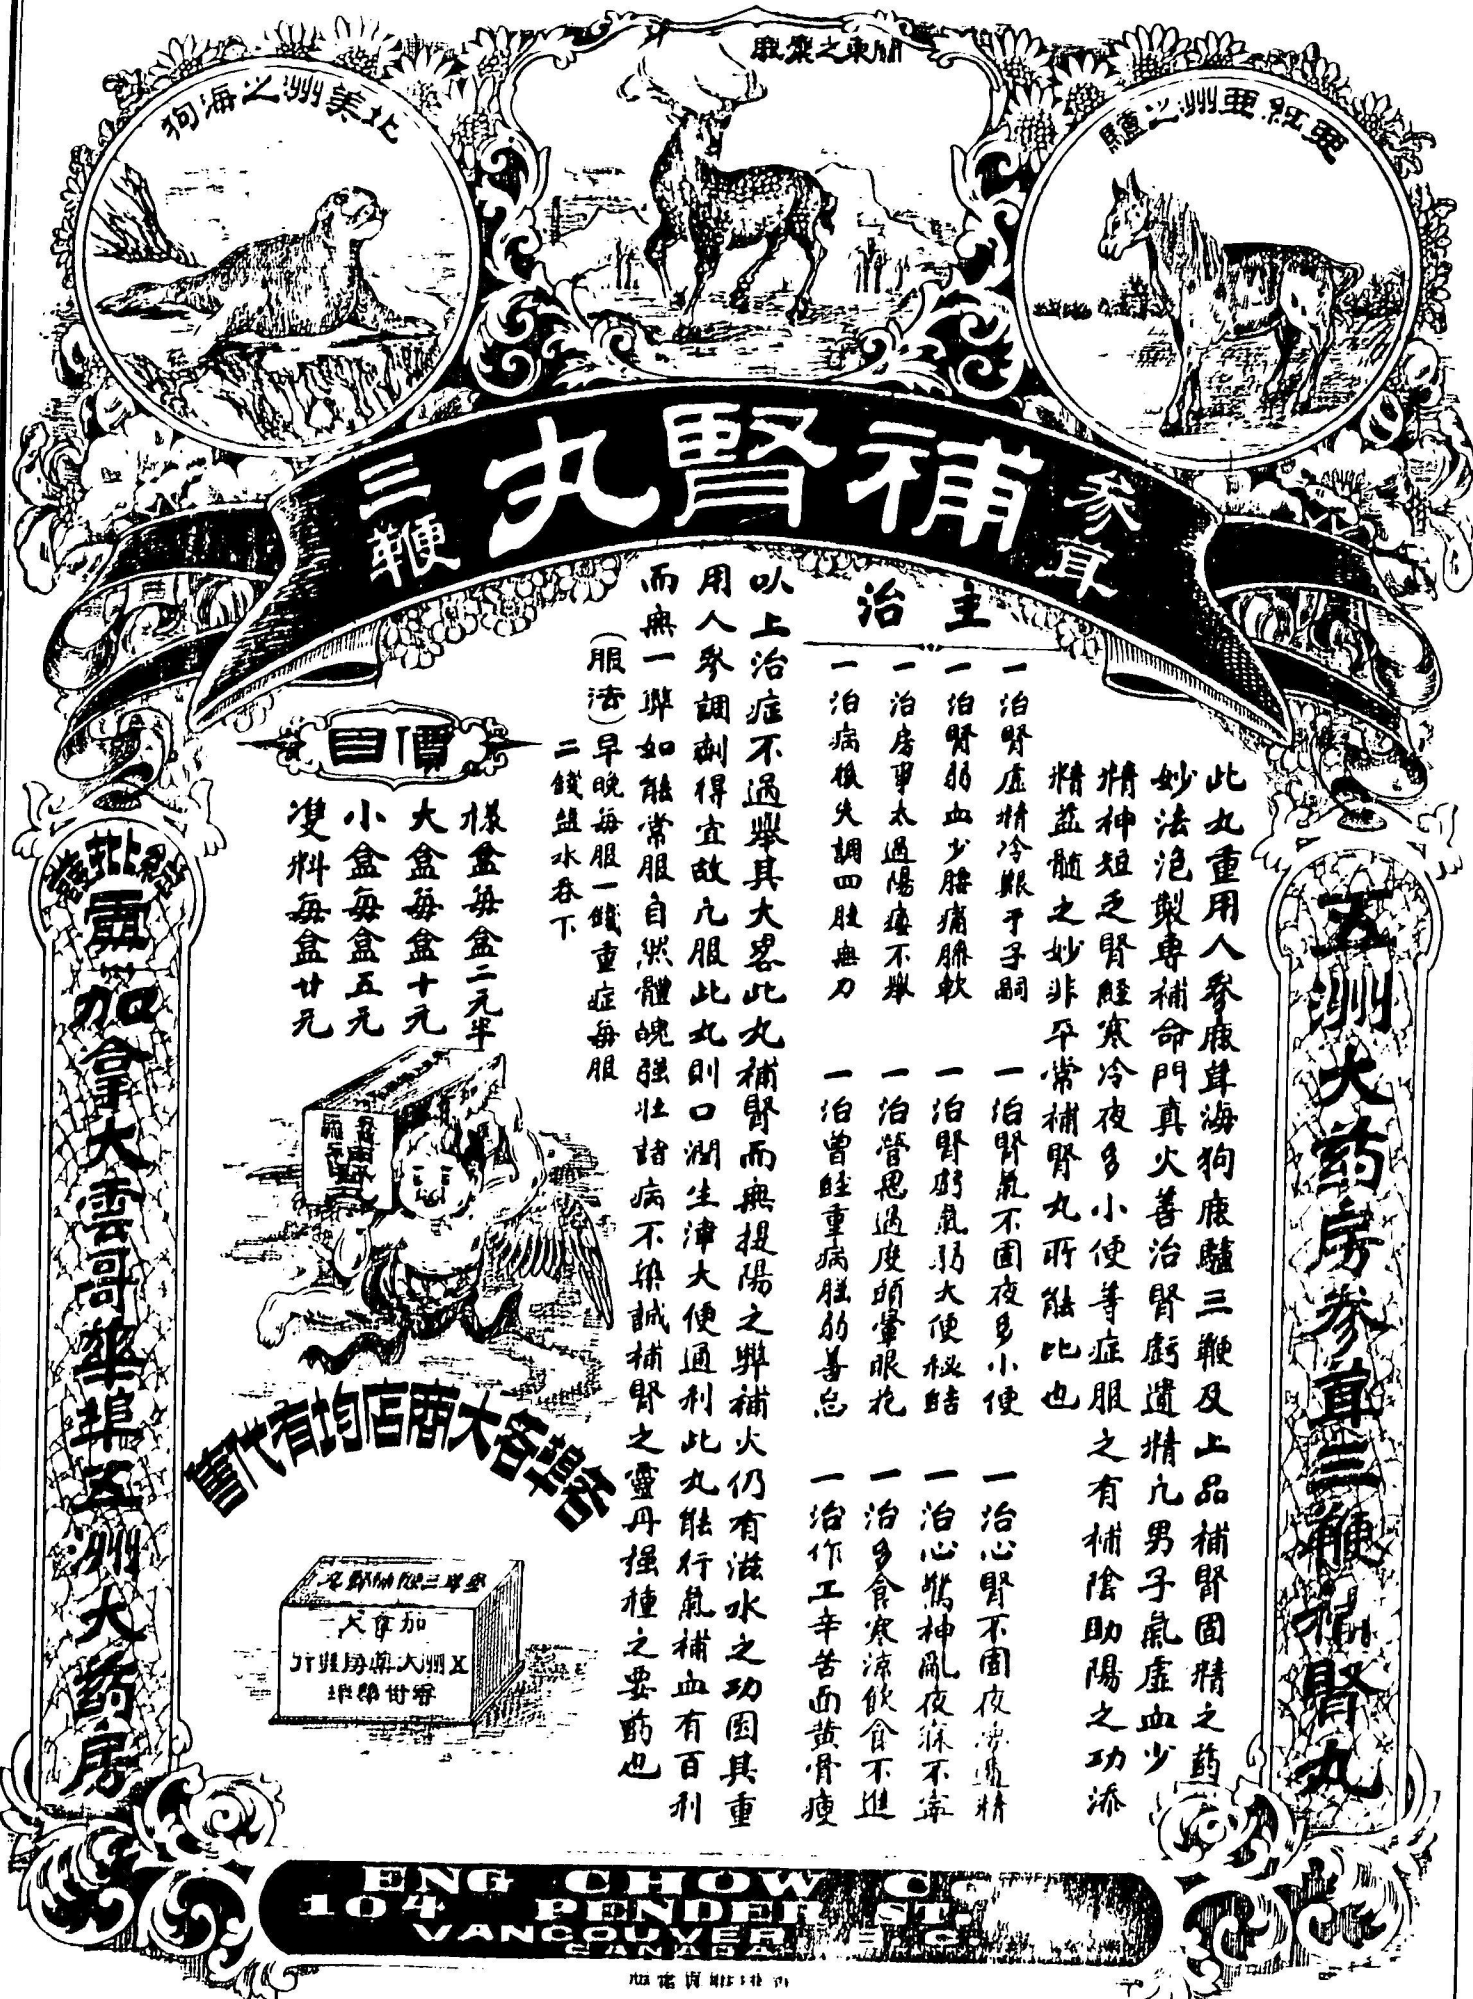 北美洲之海狗
關東之㯲鹿
亞紅亞洲之驢
參茸
補腎丸
三鞭
五洲大药房參茸三鞭補腎丸
此丸重用人參鹿茸海狗鹿驢三鞭及上品補腎固精之药
妙法泡製專補命門真火善治腎虧遺精凢男子氣虛血少
精神短乏腎經寒冷夜多小便等症服之有補陰助陽之功添
精益髓之妙非平常補腎丸所能比也
主治
一治腎虛精冷艱于子嗣
一治腎氣不固夜多小便
一治心腎不固夜夢遺精
一治腎弱血少腰痛脚軟
一治腎虧氣弱大便秘結
一治心驚神亂夜寐不寧
一治房事太過陽痿不舉
一治營思過度頭暈眼花
一治多食寒涼飲食不進
一治病後失調四肢無力
一治曾經重病腦弱善忘
一治作工辛苦面黄骨瘦
以上治症不過舉其大畧此丸補腎而無提陽之弊補火仍有滋水之功因其重
用人參調劑得宜故凢服此丸則口潤生津大便通利此丸能行氣補血有百利
而無一弊如能常服自然體魄强壮諸病不染誠補腎之靈丹種種之要药也
(服法)早晚每服一錢重症每服
二錢盐水吞下
價目
樣盒每盒二元半
大盒每盒十元
小盒每盒五元
雙料每盒廿元
各埠各大商店均有代售
加拿大
五洲大藥房
加拿大雲哥華埠五洲大药房
ENG CHOW
104 PENDER ST.
VANCOUVER B.C.
CANADA